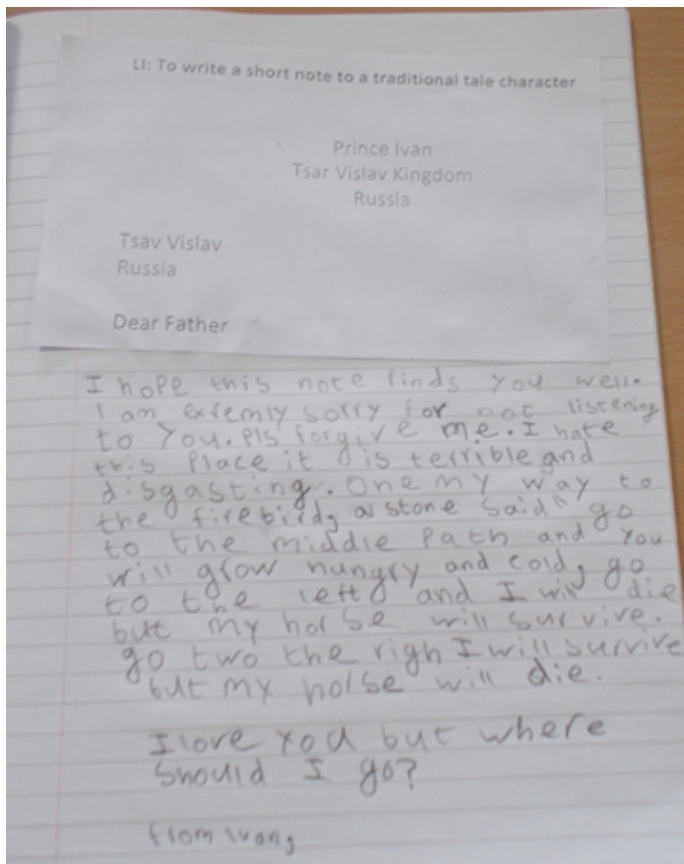 LI: To write a short note to a traditional tale character
Prince Ivan
Tsar Vislav Kingdom
Russia
Tsav Vislav
Russia
Dear Father
I hope this note finds you well.
I am exremly sorry for not listening
to you. pls forgive me. I hate
this place it is terrible and
disgasting. One my way to
the firebird, a stone said" go
to the middle path and you
will grow hungry and cold, go
to the left and I will die
but my horse will survive.
go two the righ I will survive
but my horse will die.
I love you but where
should I go?
from